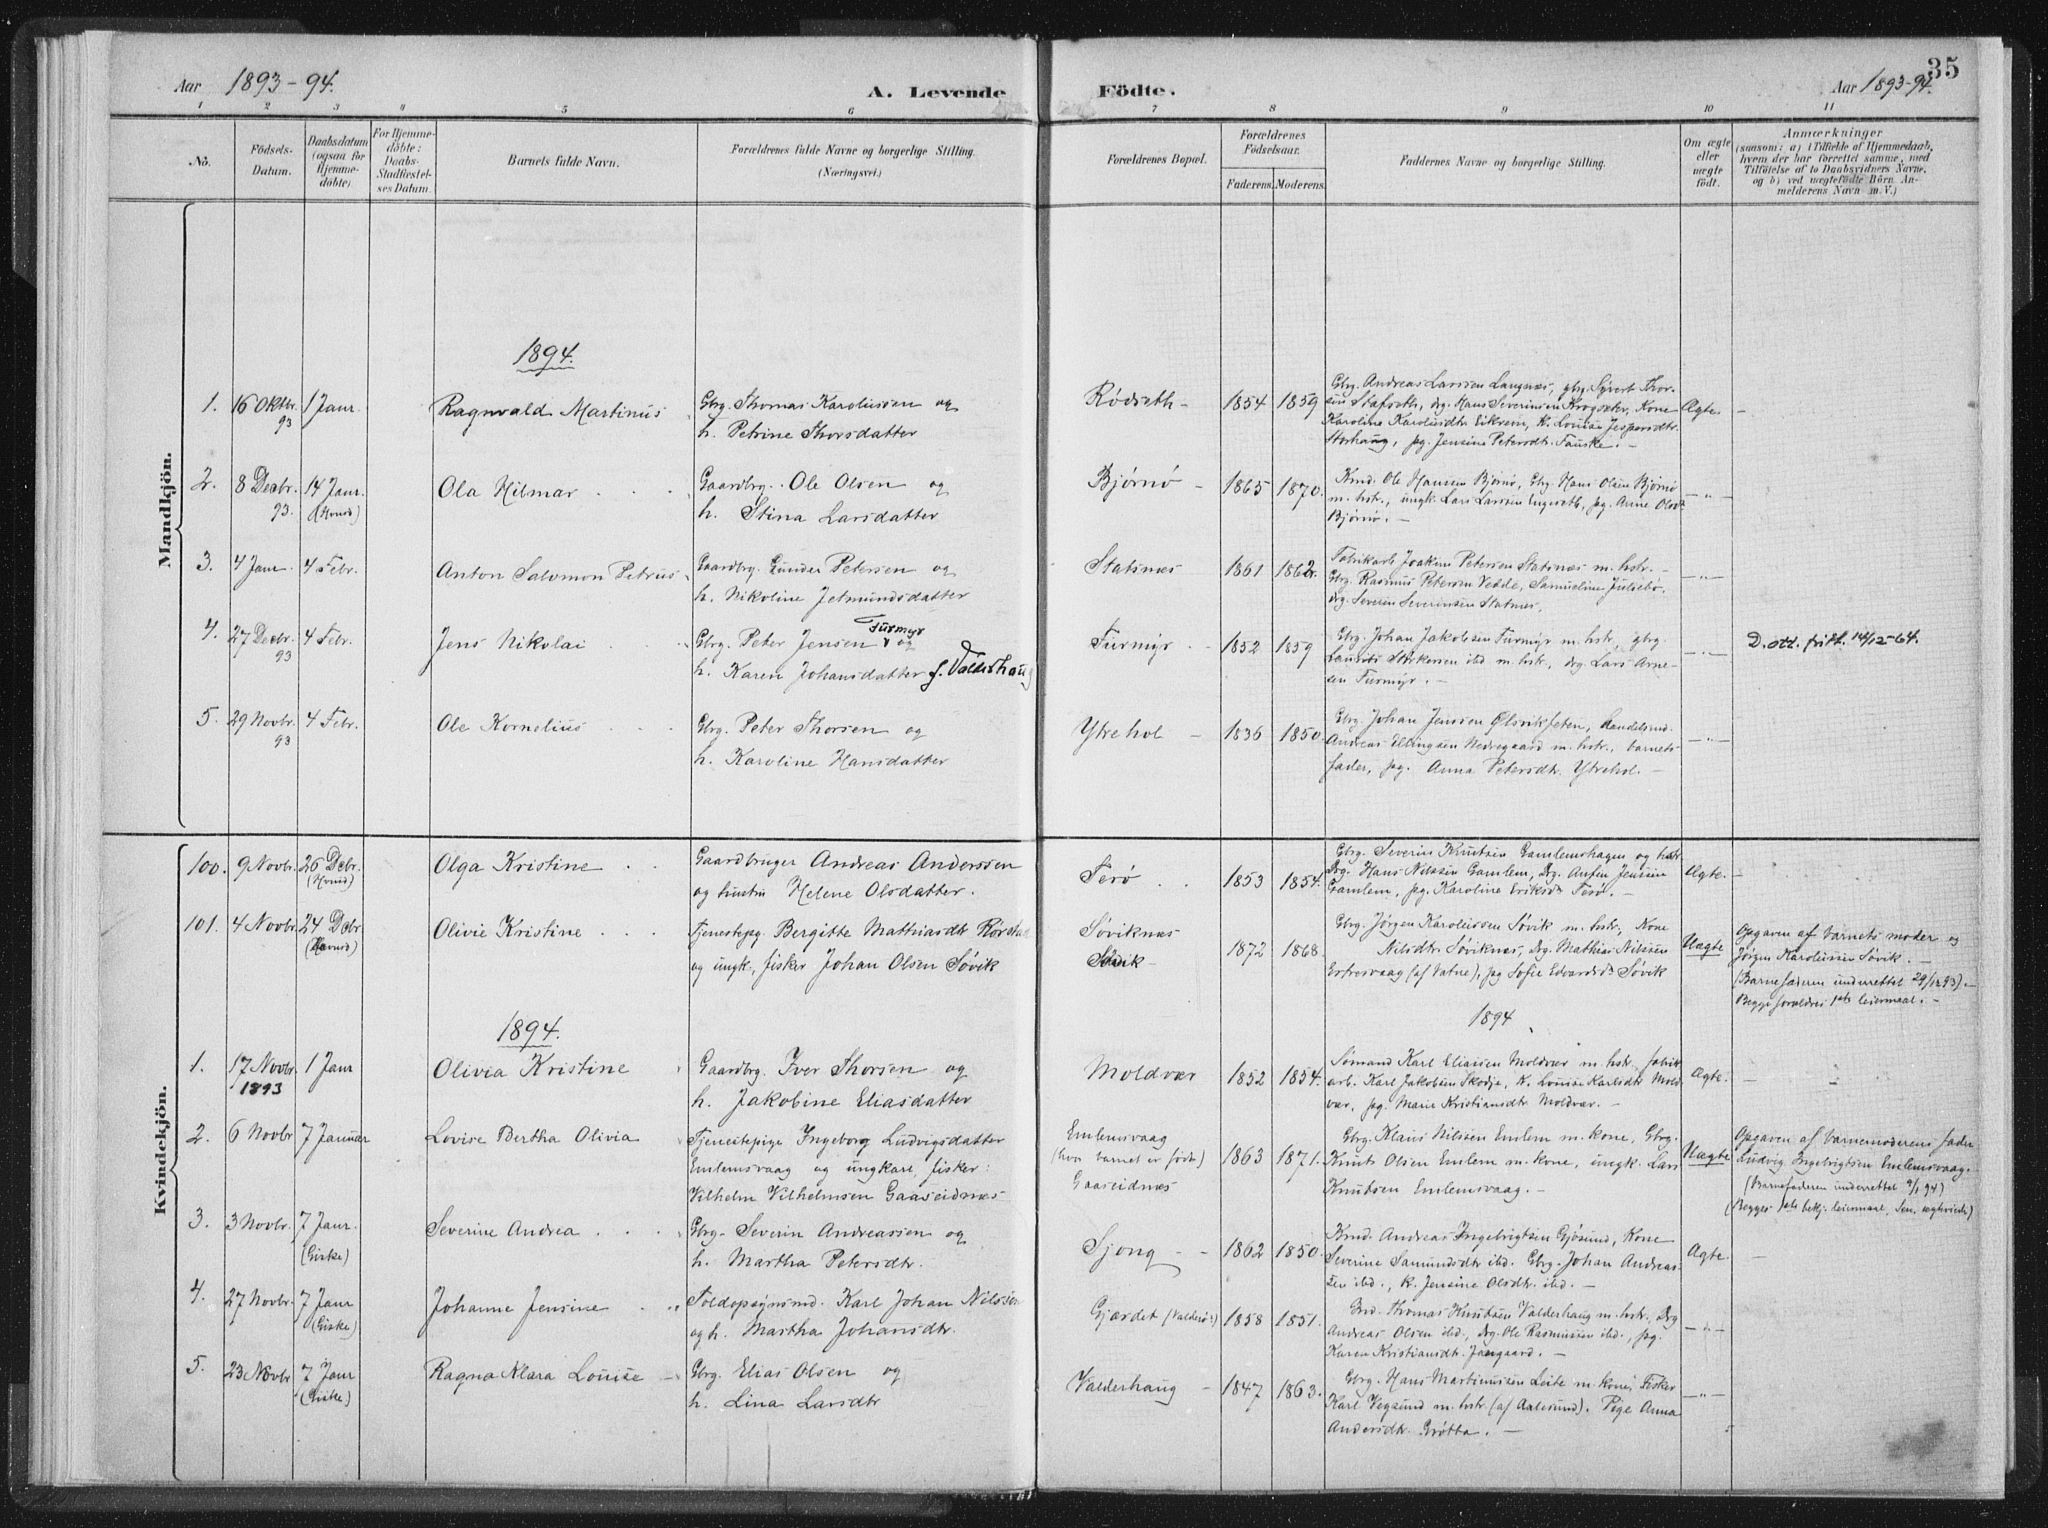 35
Aar 1893-94.
A. Levende Födte.
Aar 1893-94.
1 2 3 4 5 6 7 8 9 10 11
No.
Födsels-
Datum.
Daabsdatum
(ogsaa for
Hjemme-
döbte)
For Hjemme-
döbte:
Daabs-
Stadfæstel-
ses Datum.
Barnets fulde Navn.
Forældrenes fulde Navne og borgerlige Stilling.
(Næringsvei.)
Forældrenes Bopæl.
Forældrenes
Födselsaar.
Faderens. Moderens.
Faddernes Navne og borgerlige Stilling.
Om ægte
eller
uægte
födt.
Anmærkninger
(saasom: a) i Tilfælde af Hjemmedaab,
hvem der har forrettet samme, med
Tilföielse af to Daabsvidners Navne.
og b) ved uægtefödte Börn An-
melderens Navn m. V.)
Mandkjön.
1894.
1. 16 Oktbr. 93 1 Janr. Ragnvald Martinus
Gbrg. Thomas Karolussen og
h. Petrine Thorsdatter
Rødseth - 1854 1859
Gbrg. Andreas Larssen Langnæs, gbrg. Syvert Thor-
sen Stafseth, drg. Hans Severinsen Krogsæter, Kone
Karoline Karolusdtr. Eikrem, K. Louise Jespersdtr.
Storhaug, pg. Jensine Petersdtr. Fauske. -
Ægte. -
2. 8 Decbr. 93. 14 Janr. (Hovnd) Ola Hilmar
Gaardbrg. Ole Olsen og
h. Stina Larsdatter
Bjørnø - 1865 1870.
Kmd. Ole Hansen Bjørnø, Gbrg. Hans Olsen Bjørnø
m. hstr., ungk. Lars Larssen Ingeseth, pg. Anne Olsdr.
Bjørnø. -
-"-
3. 4 Janr. 4 Febr. Anton Salomon Petrus
Gaardbrg. Gunder Petersen og
h. Nikoline Jetmundsdatter
Statsnæs - 1861 1862.
Fabrikarb. Joakim Petersen Statsnæs m. hstr. -
Gbrg. Rasmus Petersen Vedde, Samueline Julsebø,
drg. Severin Severinsen Statnæs.
-"-
4. 27 Decbr. 93 4 Febr. Jens Nikolai
Gbrg. Peter Jensen Furmyr og
h. Karen Johansdatter f. Valderhaug
Furmyr - 1852 1859
Gbrg. Johan Jakobsen Furmyr m. hstr, gbrg.
Laurits ibd m. hstr., drg. Lars Arne-
sen Furmyr. -
-"-
D. att. fritt. 14/12-64.
5. 29 Novbr. 93 4 Febr. Ole Kornelius
Gbrg. Peter Thorsen og
h. Karoline Hansdatter
Ytrehol - 1836 1850.
Gbrg. Johan Jenssen Ølsvikfeten, handelsmd.
Andreas Ellingsen Nedregaard m. hstr., barnets
fader, pg. Anna Petersdtr. Ytrehol. -
-"-
Kvindekjön.
100. 9 Novbr. 26 Dcbr. (Hovnd) Olga Kristine
Gaardbruger Andreas Anderssen
og hustru Helene Olsdatter.
Terø 1853 1854.
Gbrg. Severin Knutsen Gamlemshagen og hstr
Drg. Hans Nilssen Gamlem, Drg. Anfin Jensen
Gamlem, pg. Karoline Eriksdr. Terø. -
Ægte. -
101. 4 Novbr. 24 Dcbr. (Havnsd) Olivie Kristine
Tjenestepg. Bergitte Mathiasdtr
og ungk., fisker Johan Olsen Søvik
Søviknæs
Søvik -
1872 1868.
Gbrg. Jørgen Karolussen Søvik m. hstr., Kone
Nilsdtr. Søviknæs, Drg. Mathias Nilssen
Eortesvaag (af Vatne), pg Sofie Edvardsdr. Søvik
Uægte
Opgaven af barnets moder og
Jörgen Karolussen Søvik. -
(Barnefaderen underrettet 29/12 93). -
Begge forældres 1ste leiermaal. -
1894.
1894
1. 17 Novbr. 1893 1 Janr Olivia Kristine
Gaardbrg. Iver Thorsen og
h. Jakobine Eliasdatter
Moldvær 1852 1854.
Sømand Karl Eliassen Moldvær m. hstr, fabrik
arb. Karl Jakobsen Skodje, K. Louise Karlsdtr Mold-
vær, pg. Marie Kristiansdtr Moldvær. -
Ægte. -
2. 6 Novbr 7 Januar Lovise Bertha Olivia
Tjenestepige Ingeborg Ludvigsdatter
Emlemsvaag og ungkarl, fisker:
Vilhelm Vilhelmsen Gaaseidnæs
Emlemsvaag
(hvor barnet er født)
Gaaseidnæs
1863 1871.
Gbrg. Klaus Nilssen Emlem m. kone, Gbrg.
Knut Olsen Emlem m. kone, ungk. Lars
Knutsen Emlemsvaag. -
Uægte
Opgaven af barnemoderens fader
Ludvig Ingebrigtsen Emlemsvaag.
(Barnefaderen underrettet 9/1 94)
(Begges 1ste bekj. leiermaal, )
3. 3 Novbr. 7 Janr. (Giske) Severine Andrea
Gbrg. Severin Andreassen og
h. Martha Petersdtr.
Sjong - 1862 1850.
Kmd. Andreas Ingebrigtsen Gjøsund, Kone
Severine Samundsdtr ibd. Gbrg. Johan Andreas-
sen ibd., k. Jensine Olsdtr. ibd. -
Ægte. -
4. 27 Novbr. 7 Janr (Giske) Johanne Jensine
Toldopsynsmd. Karl Johan Nilssen
og h. Martha Johansdtr.
Gjærdet (Valderø) 1858 1851.
Gmd. Thomas Knutsen Valderhaug m. hstr., Drg
Andreas Olsen ibd., drg. Ole Rasmussen ibd., pg.
Karen Kristiansdtr. Jangaard. -
-"-
5. 23 Novbr 7 Janr (Giske) Ragna Klara Louise
Gbrg. Elias Olsen og
h. Lina Larsdtr
Valderhaug - 1847 1863.
Gbrg. Hans Martinussen Leite m. kone, Fisker
Karl Vegsund m. hstr (af Aalesund). Pige Anna
Andersdtr. Grøtta. -
-"-